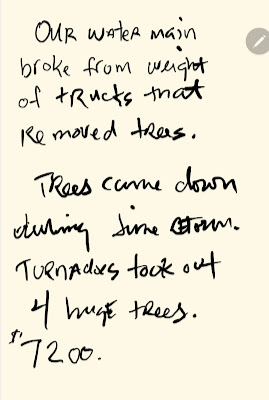 OUR WATER main
broke from weight
of tRucks that
Removed trees.
TRees came down
during June storm.
TURNADOES took out
4 huge trees.
$7200.